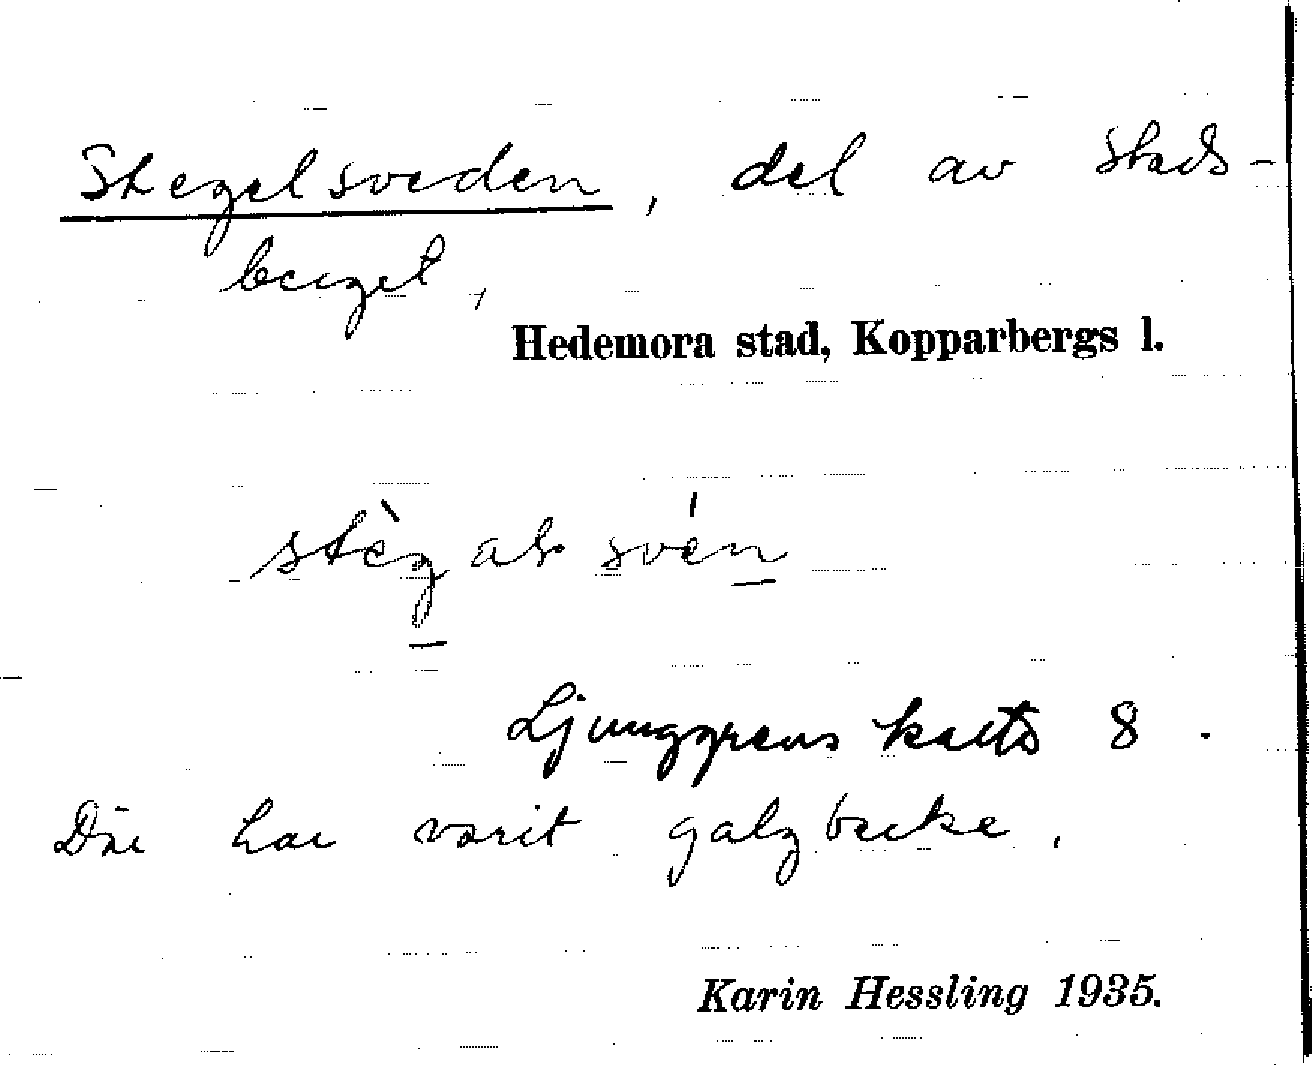 Stegelsveden, del av Stads-
berget,
Hedemora stad, Kopparbergs l.
stègalssvén
Ljunggrens karta 8.
Där har varit galgbacke.
Karin Hessling 1935.